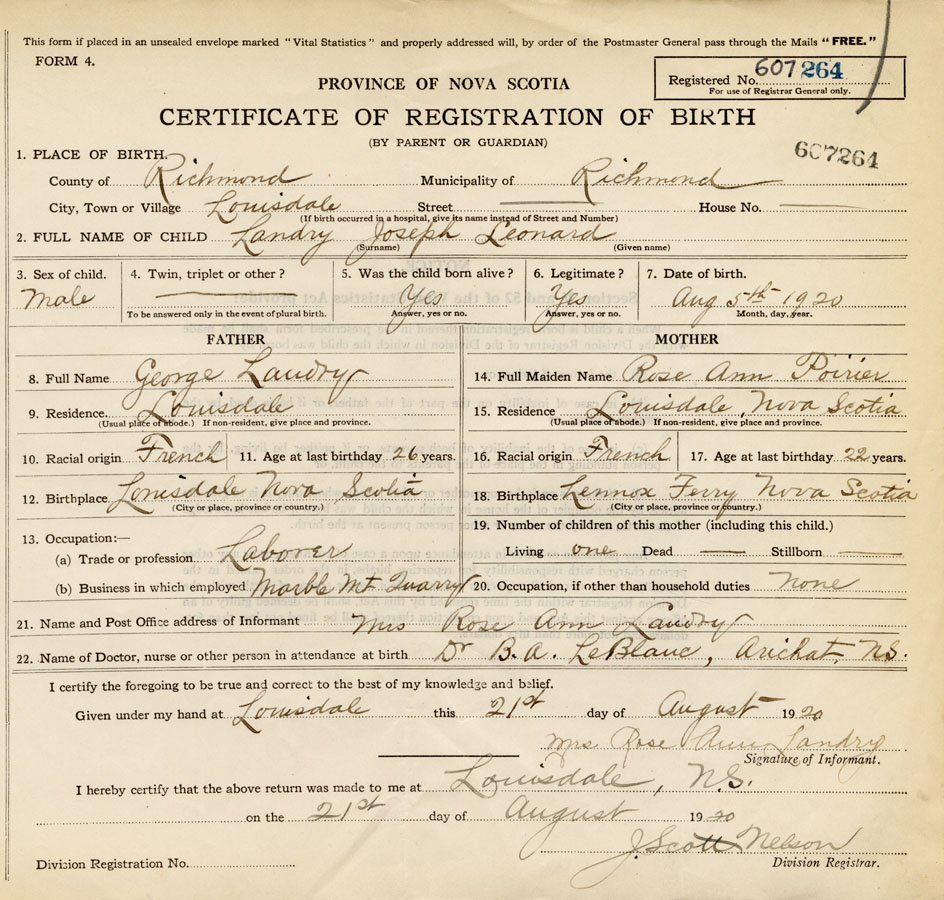 This form if placed in an unsealed envelope marked "Vital Statistics" and properly addressed will, by order of the Postmaster General pass through the Mails "FREE."
FORM 4.
Registered No. 607264
For use of Registrar General only.
PROVINCE OF NOVA SCOTIA
CERTIFICATE OF REGISTRATION OF BIRTH
(BY PARENT OR GUARDIAN)
607264
1. PLACE OF BIRTH.
County of Richmond Municipality of Richmond
City, Town or Village Louisdale Street House No.
(If birth occurred in a hospital, give its name instead of Street and Number)
2. FULL NAME OF CHILD Landry Joseph Leonard
(Surname) (Given name)
3. Sex of child. 4. Twin, triplet or other? 5. Was the child born alive? 6. Legitimate? 7. Date of birth.
Male Yes Yes Aug 5th 1920
To be answered only in the event of plural birth. Answer, yes or no. Answer, yes or no. Month, day, year.
FATHER MOTHER
8. Full Name George Landry 14. Full Maiden Name Rose Ann Poirier
9. Residence. Louisdale 15. Residence Louisdale, Nova Scotia
(Usual place of abode.) If non-resident, give place and province. (Usual place of abode.) If non-resident, give place and province.
10. Racial origin French 11. Age at last birthday 26 years. 16. Racial origin French 17. Age at last birthday 22 years.
12. Birthplace Louisdale Nova Scotia 18. Birthplace Lennox Ferry Nova Scotia
(City or place, province or country.) (City or place, province or country.)
13. Occupation:— 19. Number of children of this mother (including this child.)
(a) Trade or profession Laborer Living one Dead Stillborn
(b) Business in which employed Marble Mt Quarry 20. Occupation, if other than household duties none
21. Name and Post Office address of Informant Mrs Rose Ann Landry
22. Name of Doctor, nurse or other person in attendance at birth Dr B.A. LeBlanc, Arichat, NS.
I certify the foregoing to be true and correct to the best of my knowledge and belief.
Given under my hand at Louisdale this 21st day of August 1920
Mrs Rose Ann Landry
Signature of Informant.
I hereby certify that the above return was made to me at Louisdale, N.S.
on the 21st day of August 1920
J. Scott Nelson
Division Registration No. Division Registrar.